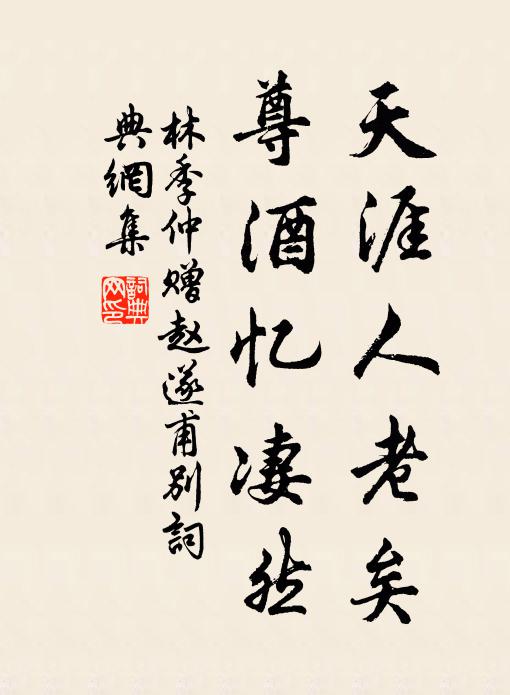 天涯人老矣
尊酒忆凄然
林季仲赠赵遂甫别詞
典網集
詞典网印